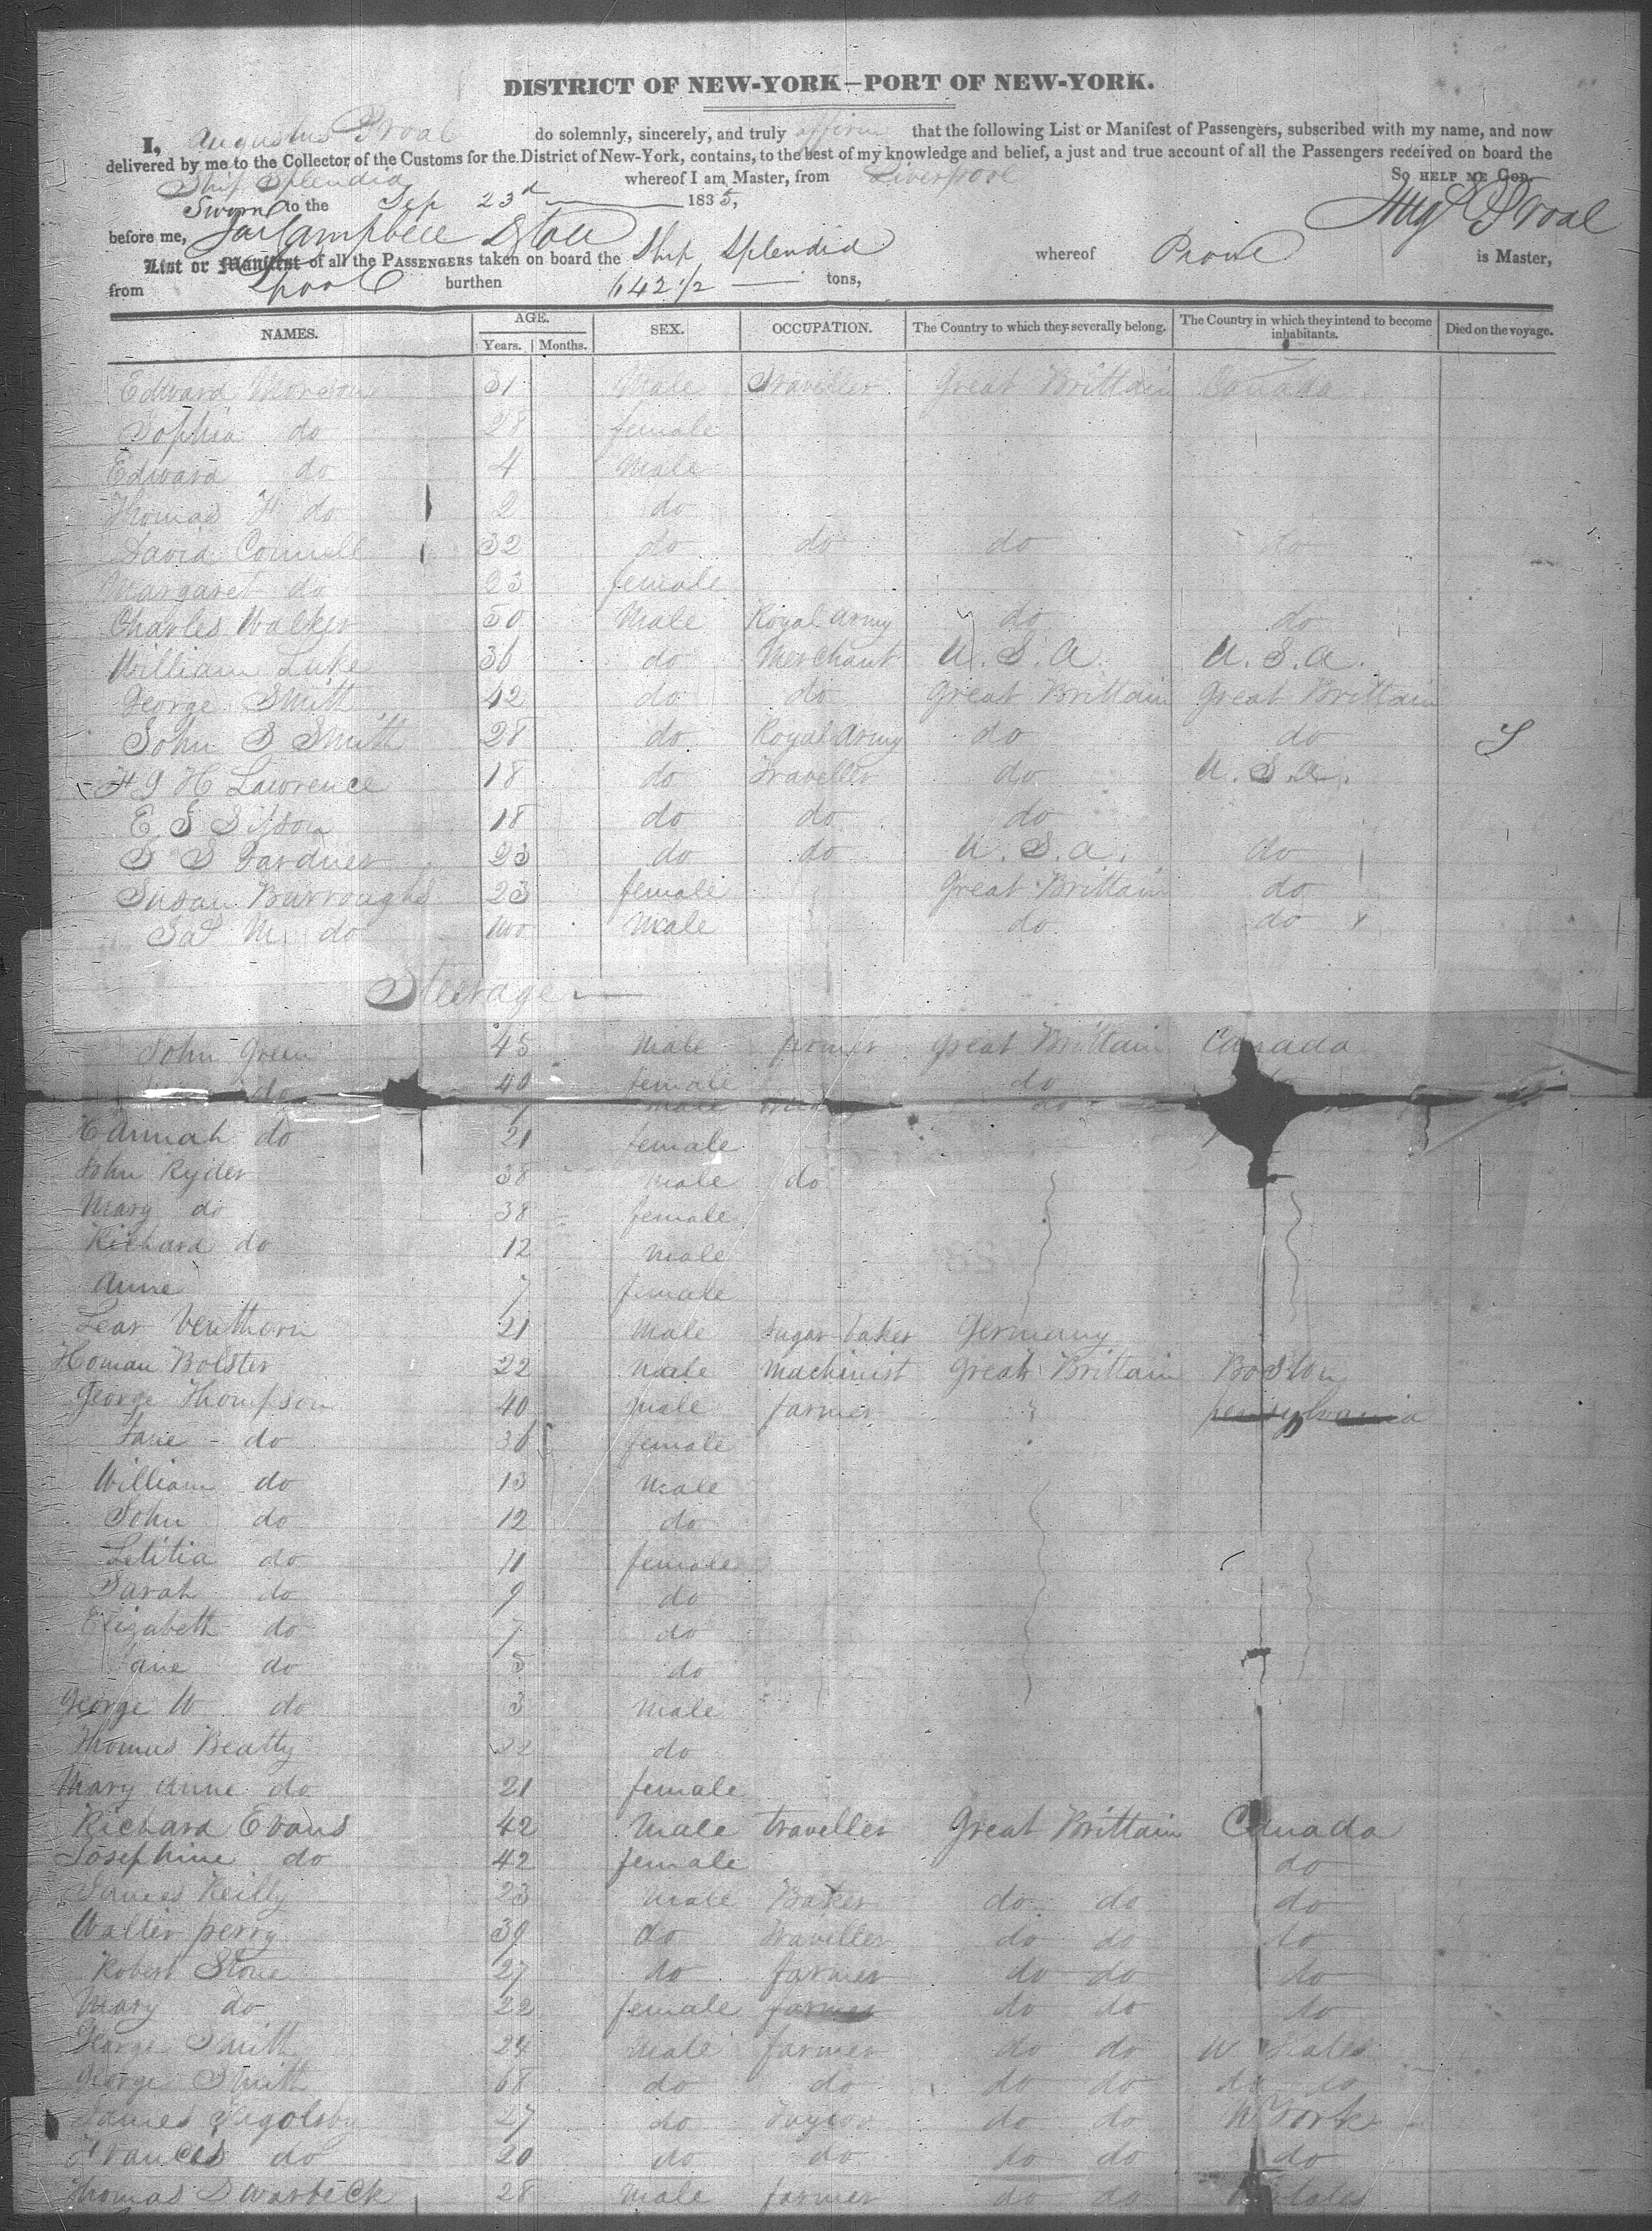 DISTRICT OF NEW-YORK—PORT OF NEW-YORK.
I, Augustus Proal do solemnly, sincerely, and truly affirm that the following List or Manifest of Passengers, subscribed with my name, and now
delivered by me to the Collector of the Customs for the District of New-York, contains, to the best of my knowledge and belief, a just and true account of all the Passengers received on board the
Ship Splendid whereof I am Master, from Liverpool So HELP ME GOD.
Sworn to the Sep 23d 1835,
before me, Campbell Augs Proal
List or Manifest of all the PASSENGERS taken on board the Ship Splendid whereof is Master,
from Lpool burthen 642 1/2 tons,
NAMES. AGE. Years. Months. SEX. OCCUPATION. The Country to which they severally belong. The Country in which they intend to become inhabitants. Died on the voyage.
Edward 31 Male Traveller Great Brittain Canada
Sophia do 28 female
Edward do 4 Male
Thomas H do 2 do
David 32 do do do do
Margaret do 23 female
Charles Walker 50 Male Royal Army do do
William Luke 36 do Merchant U.S.A. U.S.A.
George Smith 42 do do Great Brittain Great Brittain
John S Smith 28 do Royal Army do do
H Lawrence 18 do Traveller do U.S.A.
E S 18 do do do
S Gardner 23 do do U.S.A. do
Susan Burroughs 23 female Great Brittain do
M. do Male do do
Steerage
John Green 45 Male farmer Great Brittain Canada
do 40 female do
male
Hannah do 21 female
John Ryder 38 male do
Mary do 38 female
Richard do 12 male
Anne 7 female
21 Male Sugar baker Germany
Homan Bolster 22 male Machinist Great Brittain Boston
George Thompson 40 Male farmer " pensylvania
Jane do 36 female
William do 13 Male
John do 12 do
Letitia do 11 female
Sarah do 9 do
Elizabeth do 7 do
Jane do 5 do
George W do 3 Male
Thomas Beatty 22 do
Mary Anne do 21 female
Richard Evans 42 Male traveller Great Brittain Canada
Josephine do 42 female do
James Reilly 23 Male Baker do do do
Walter perry 39 do Traveller do do do
Robert Stone 27 do farmer do do do
Mary do 22 female farmer do do do
George Smith 24 Male farmer do do
George Smith 68 do do do do do do
James 27 do Taylor do do N York
Frances do 20 do do do do do
Thomas Swarbeck 28 Male farmer do do